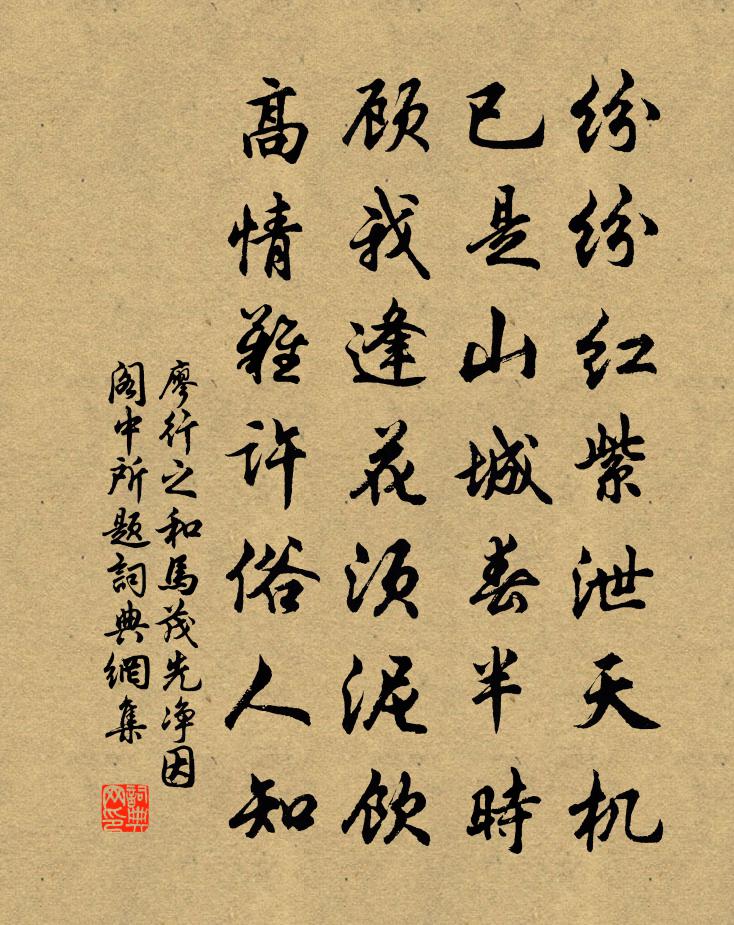 纷纷红紫泄天机
已是山城春半時
顾我逢花须泥饮
高情難许俗人知
廖行之和馬茂先净因
阁中所题詞典網集
詞典网印